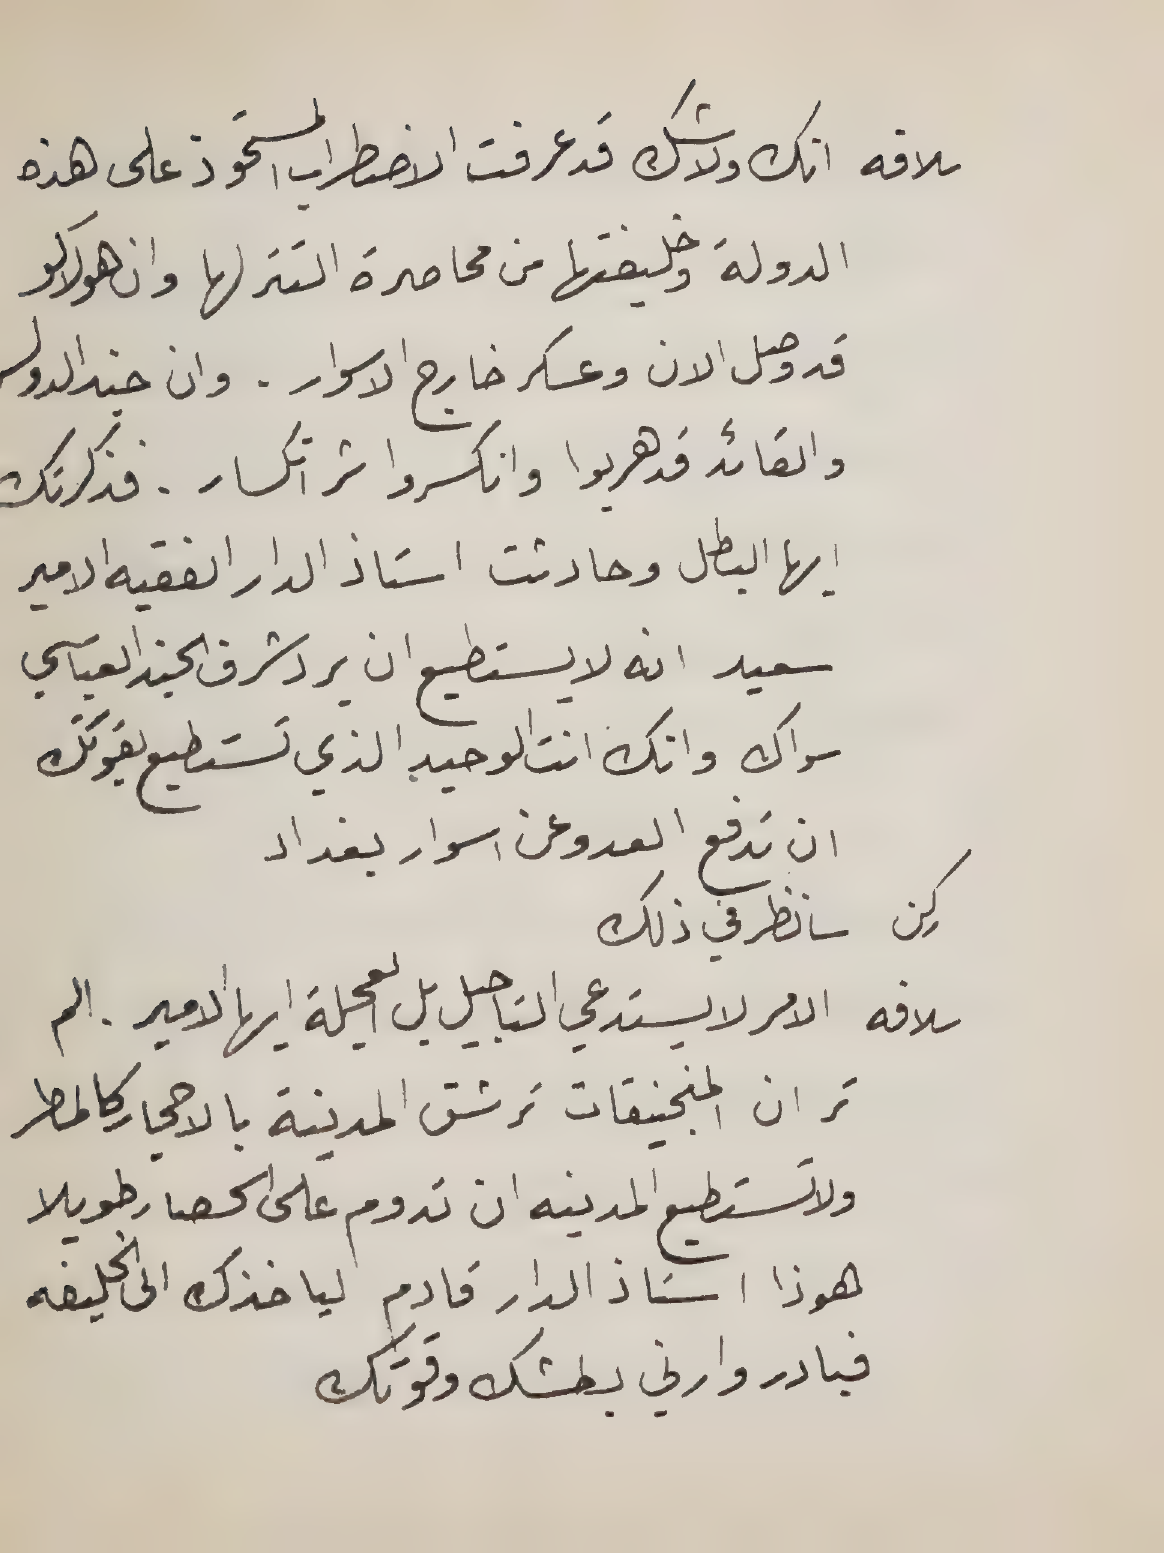 سلافه انك ولاشك قد عرفت الاضطراب المستحوذ على هذه
الدولة وخليفتها من محاصرة التتر لها وان هولاكو
قد وصل الان وعسكر خارج الاسوار . وان جند الدولة
والقائد قد هربوا وانكسروا شر انكسار . فذكرتك
ايها البطل وحادثت استاذ الدار الفقيه الامير
سعيد انه لا يستطيع ان يرد شرف الجند العباسي
سواك وانك انت الوحيد الذي تستطيع بقوتك
ان تدفع العدو عن اسوار بغداد
ركن سانظر في ذلك
سلافه الامر لا يستدعي التاجيل بل العجلة ايها الامير . الم
تر ان المنجنيقات ترشق المدينة بالاحجار كالمطر
ولا تستطيع المدينه ان تدوم على الحصار طويلا
هوذا استاذ الدار قادم لياخذك الى الخليفه
فبادر وارني بطشك وقوتك